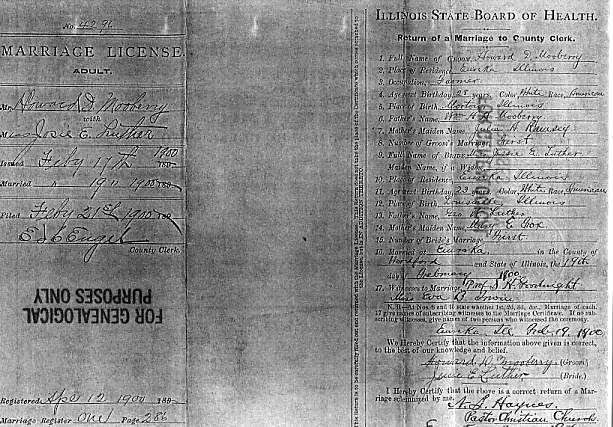 MARRIAGE LICENSE
ADULT.
Mr. Howard D. Mooberry
with
Miss Josie E. Luther
Issued Feby 17th 1900
Married " 19 " 1900
Filed Feby 21st 1900
County Clerk.
FOR GENEALOGICAL
PURPOSES ONLY
Registered Apr 12 1900
Marriage Register One Page 286
ILLINOIS STATE BOARD OF HEALTH.
Return of a Marriage to County Clerk.
1. Full Name of Groom Howard D. Mooberry
2. Place of Residence Eureka Illinois
3. Occupation Farmer
4. Age next Birthday 28 years, Color White Race, American
5. Place of Birth Morton, Illinois
6. Father's Name Wm H. A. Mooberry
7. Mother's Maiden Name Julia A Ramsey
8. Number of Groom's Marriage First
9. Full Name of Bride Miss Josie E. Luther
Maiden Name, if a Widow
10. Place of Residence Eureka Illinois
11. Age next Birthday, 23 years Color White Race, American
12. Place of Birth Illinois
13. Father's Name Luther
14. Mother's Maiden Name E. Fox
15. Number of Bride's Marriage First
16. Married at Eureka, in the County of
Woodford and State of Illinois, the 19th
day of February 1900
17. Witnesses to Marriage Prof. S. H.
Miss Eva B.
N. B.—At Nos. 8 and 15 state whether 1st, 2d, 3d, &c., Marriage of each.
17 give names of subscribing witnesses to the Marriage Certificate. If no sub-
scribing witnesses, give names of two persons who witnessed the ceremony.
Eureka Ill Feb. 19, 1900
We Hereby Certify that the information above given is correct,
to the best of our knowledge and belief.
Howard D. Mooberry (Groom)
Josie E. Luther (Bride.)
I Hereby Certify that the above is a correct return of a Mar-
riage solemnized by me.
N. S. Haynes.
Pastor Christian Church.